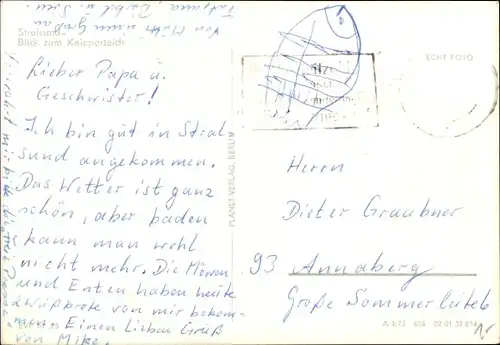 Stralsund
Blick zum Knieperteich
Lieber Papa u.
Geschwister!
Ich bin gut in Stral
sund angekommen.
Das Wetter ist ganz
schön, aber baden
kann man wohl
nicht mehr. Die Möwen
und Enten haben heute
Wußbrote von mir bekom-
men. Einen Lieben Gruß
von Mike.
Von Mutti einen Gruß an
PLANET-VERLAG, BERLIN
ECHT FOTO
Herrn
Dieter Graubner
93 Annaberg
Große Sommerleite 6
A 1/73
02 01 32 074